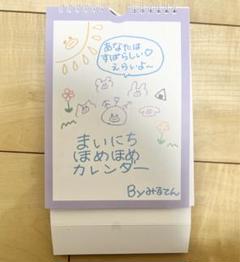 あなたは
すばらしい♡
えらいよ〜
まいにち
ほめほめ
カレンダー
Byみるてん